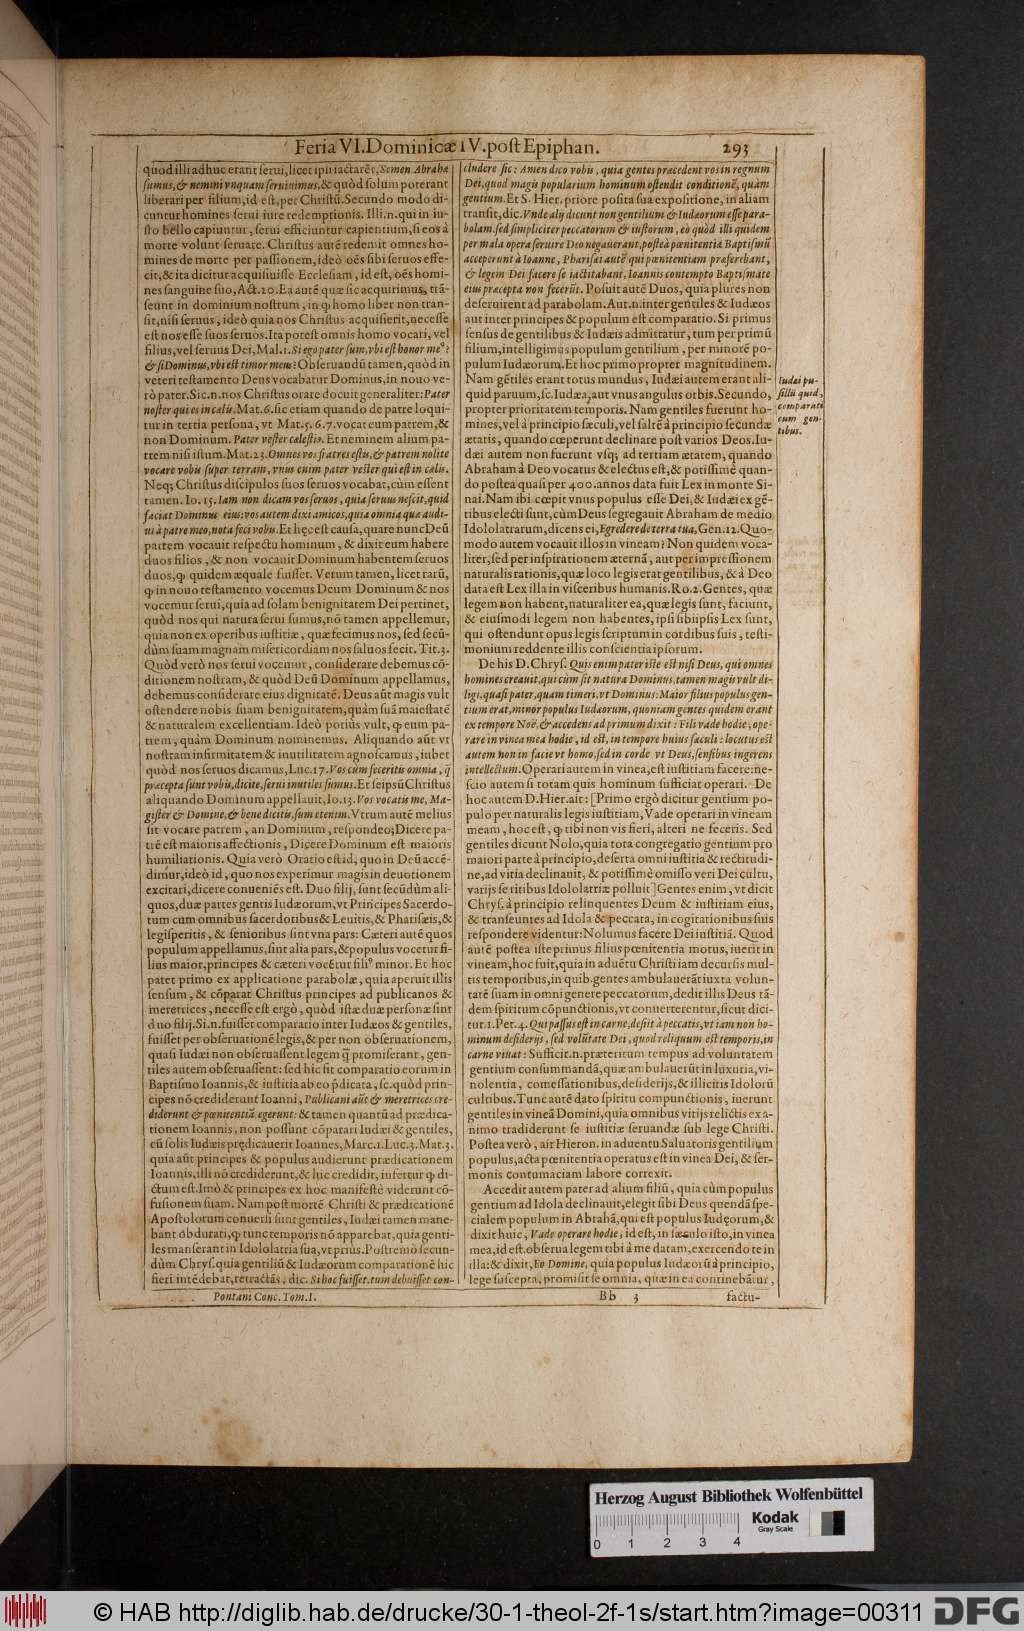 Feria VI. Dominicæ IV. post Epiphan. 293
quod illi adhuc erant serui, licet ipsi iactarẽt, Semen Abrahæ
sumus, & nemini vnquam seruiuimus, & quòd solum poterant
liberari per filium, id est, per Christũ. Secundo modo di-
cuntur homines serui iure redemptionis. Illi. n. qui in iu-
sto bello capiuntur, serui efficiuntur capientium, si eos à
morte volunt seruare. Christus autẽ redemit omnes ho-
mines de morte per passionem, ideò oẽs sibi seruos effe-
cit, & ita dicitur acquisiuisse Ecclesiam, id est, oẽs homi-
nes sanguine suo, Act. 20. Ea autẽ quæ sic acquirimus, trã-
seunt in dominium nostrum, in ꝙ homo liber non tran-
sit, nisi seruus, ideò quia nos Christus acquisierit, necesse
est nos esse suos seruos. Ita potest omnis homo vocari, vel
filius, vel seruus Dei, Mal. 1. Si ego pater sum, vbi est honor meꝰ?
& si Dominus, vbi est timor meus? Obseruandũ tamen, quòd in
veteri testamento Deus vocabatur Dominus, in nouo ve-
rò pater. Sic. n. nos Christus orare docuit generaliter: Pater
noster qui es in cælis. Mat. 6. sic etiam quando de patre loqui-
tur in tertia persona, vt Mat. 5. 6. 7. vocat eum patrem, &
non Dominum. Pater vester cælestis. Et neminem alium pa-
trem nisi istum. Mat. 23. Omnes vos fratres estis, & patrem nolite
vocare vobis super terram, vnus enim pater vester qui est in cælis.
Neq; Christus discipulos suos seruos vocabat, cùm essent
tamen. Io. 15. Iam non dicam vos seruos, quia seruus nescit, quid
faciat Dominus eius: vos autem dixi amicos, quia omnia quæ audi-
ui à patre meo, nota feci vobis. Et hęc est causa, quare nunc Deũ
patrem vocauit respectu hominum, & dixit eum habere
duos filios, & non vocauit Dominum habentem seruos
duos, ꝙ quidem æquale fuisset. Verum tamen, licet rarũ,
ꝙ in nouo testamento vocemus Deum Dominum & nos
vocemur serui, quia ad solam benignitatem Dei pertinet,
quòd nos qui natura serui sumus, nõ tamen appellemur,
quia non ex operibus iustitiæ, quæ fecimus nos, sed secũ-
dùm suam magnam misericordiam nos saluos fecit. Tit. 3.
Quòd verò nos serui vocemur, considerare debemus cõ-
ditionem nostram, & quòd Deũ Dominum appellamus,
debemus considerare eius dignitatẽ. Deus aũt magis vult
ostendere nobis suam benignitatem, quàm suã maiestatẽ
& naturalem excellentiam. Ideò potius vult, ꝙ eum pa-
trem, quàm Dominum nominemus. Aliquando aũt vt
nostram infirmitatem & inutilitatem agnoscamus, iubet
quòd nos seruos dicamus, Luc. 17. Vos cum feceritis omnia, q̃
præcepta sunt vobis, dicite, serui inutiles sumus. Et seipsũ Christus
aliquando Dominum appellauit, Io. 13. Vos vocatis me, Ma-
gister & Domine, & bene dicitis, sum etenim. Vtrum autẽ melius
sit vocare patrem, an Dominum, respondeo; Dicere pa-
trẽ est maioris affectionis, Dicere Dominum est maioris
humiliationis. Quia verò Oratio est id, quo in Deũ accẽ-
dimur, ideò id, quo nos experimur magis in deuotionem
excitari, dicere conueniẽs est. Duo filij, sunt secũdùm ali-
quos, duæ partes gentis Iudæorum, vt Principes Sacerdo-
tum cum omnibus sacerdotibus & Leuitis, & Pharisæis, &
legisperitis, & senioribus sint vna pars: Cæteri autẽ quos
populum appellamus, sint alia pars, & populus vocetur fi-
lius maior, principes & cæteri vocẽtur filiꝰ minor. Et hoc
patet primo ex applicatione parabolæ, quia aperuit illis
sensum, & cõparat Christus principes ad publicanos &
meretrices, necesse est ergò, quòd istæ duæ personæ sint
duo filij. Si. n. fuisset comparatio inter Iudæos & gentiles,
fuisset per obseruationẽ legis, & per non obseruationem,
quasi Iudæi non obseruassent legem q̃ promiserant, gen-
tiles autem obseruassent: sed hic sit comparatio eorum in
Baptismo Ioannis, & iustitia ab eo p̃dicata, sc. quòd prin-
cipes nõ crediderunt Ioanni, Publicani aũt & meretrices cre-
diderunt & pœnitentiã egerunt: & tamen quantũ ad prædica-
tionem Ioannis, non possunt cõparari Iudæi & gentiles,
cũ solis Iudæis prędicauerit Ioannes, Marc. 1. Luc. 3. Mat. 3.
quia aũt principes & populus audierunt prædicationem
Ioannis, illi nõ crediderunt, & hic credidit, infertur ꝙ di-
ctum est. Imò & principes ex hoc manifestè viderunt cõ-
fusionem suam. Nam post mortẽ Christi & prædicationẽ
Apostolorum conuersi sunt gentiles, Iudæi tamen mane-
bant obdurati, ꝙ tunc temporis nõ apparebat, quia genti-
les manserant in Idololatria sua, vt prius. Postremò secun-
dùm Chrys. quia gentiliũ & Iudæorum comparationẽ hic
fieri intẽdebat, retractãs, dic. Si hoc fuisset, tum debuisset con-
cludere sic: Amen dico vobis, quia gentes præcedent vos in regnum
Dei, quod magis popularium hominum ostendit conditionẽ, quàm
gentium. Et S. Hier. priore posita sua expositione, in aliam
transit, dic. Vnde alij dicunt non gentilium & Iudæorum esse para-
bolam, sed simpliciter peccatorum & iustorum, eò quòd illi quidem
per mala opera seruire Deo negauerant, posteà pœnitentiã Baptismũ
acceperunt à Ioanne, Pharisæi autẽ qui pœnitentiam præferebant,
& legem Dei facere se iactitabant, Ioannis contempto Baptismate
eius præcepta non fecerũt. Posuit autẽ Duos, quia plures non
deseruirent ad parabolam. Aut. n. inter gentiles & Iudæos
aut inter principes & populum est comparatio. Si primus
sensus de gentilibus & Iudæis admittatur, tum per primũ
filium, intelligimus populum gentilium, per minorẽ po-
pulum Iudæorum. Et hoc primo propter magnitudinem.
Nam gẽtiles erant totus mundus, Iudæi autem erant ali-
quid paruum, sc. Iudæa, aut vnus angulus orbis. Secundo,
propter prioritatem temporis. Nam gentiles fuerunt ho-
mines, vel à principio sæculi, vel saltẽ à principio secundæ
ætatis, quando cœperunt declinare post varios Deos. Iu-
dæi autem non fuerunt vsq; ad tertiam ætatem, quando
Abraham à Deo vocatus & electus est, & potissimè quan-
do postea quasi per 400. annos data fuit Lex in monte Si-
nai. Nam ibi cœpit vnus populus esse Dei, & Iudæi ex gẽ-
tibus electi sunt, cùm Deus segregauit Abraham de medio
Idololatrarum, dicens ei, Egredere de terra tua, Gen. 12. Quo-
modo autem vocauit illos in vineam? Non quidem voca-
liter, sed per inspirationem æternã, aut per impressionem
naturalis rationis, quæ loco legis erat gentilibus, & à Deo
data est Lex illa in visceribus humanis. Ro. 2. Gentes, quæ
legem non habent, naturaliter ea, quæ legis sunt, faciunt,
& eiusmodi legem non habentes, ipsi sibiipsis Lex sunt,
qui ostendunt opus legis scriptum in cordibus suis, testi-
monium reddente illis conscientia ipsorum.
De his D. Chrys. Quis enim pater iste est nisi Deus, qui omnes
homines creauit, qui cum sit natura Dominus, tamen magis vult di-
ligi, quasi pater, quam timeri, vt Dominus: Maior filius populus gen-
tium erat, minor populus Iudæorum, quoniam gentes quidem erant
ex tempore Noë, & accedens ad primum dixit: Fili vade hodie, ope-
rare in vinea mea hodie, id est, in tempore huius sæculi: locutus est
autem non in facie vt homo, sed in corde vt Deus, sensibus ingerens
intellectum. Operari autem in vinea, est iustitiam facere: ne-
scio autem si totam quis hominum sufficiat operari. De
hoc autem D. Hier. ait: [Primo ergò dicitur gentium po-
pulo per naturalis legis iustitiam, Vade operari in vineam
meam, hoc est, ꝙ tibi non vis fieri, alteri ne feceris. Sed
gentiles dicunt Nolo, quia tota congregatio gentium pro
maiori parte à principio, deserta omni iustitia & rectitudi-
ne, ad vitia declinauit, & potissimè omisso veri Dei cultu,
varijs se ritibus Idololatriæ polluit] Gentes enim, vt dicit
Chrys. à principio relinquentes Deum & iustitiam eius,
& transeuntes ad Idola & peccata, in cogitationibus suis
respondere videntur: Nolumus facere Dei iustitiã. Quod
autẽ postea iste primus filius pœnitentia motus, iuerit in
vineam, hoc fuit, quia in aduẽtu Christi iam decursis mul-
tis temporibus, in quib. gentes ambulauerãt iuxta volun-
tatẽ suam in omni genere peccatorum, dedit illis Deus tã-
dem spiritum cõpunctionis, vt conuerterentur, sicut dici-
tur. 1. Pet. 4. Qui passus est in carne, desijt à peccatis, vt iam non ho-
minum desiderijs, sed volũtate Dei, quod reliquum est temporis, in
carne viuat: Sufficit. n. præteritum tempus ad voluntatem
gentium consummandã, quæ ambulauerũt in luxuria, vi-
nolentia, comessationibus, desiderijs, & illicitis Idolorũ
cultibus. Tunc autẽ dato spiritu compunctionis, iuerunt
gentiles in vineã Domini, quia omnibus vitijs relictis ex a-
nimo tradiderunt se iustitiæ seruandæ sub lege Christi.
Postea verò, ait Hieron. in aduentu Saluatoris gentilium
populus, acta pœnitentia operatus est in vinea Dei, & ser-
monis contumaciam labore correxit.
Accedit autem pater ad alium filiũ, quia cùm populus
gentium ad Idola declinauit, elegit sibi Deus quendã spe-
cialem populum in Abrahã, qui est populus Iudęorum, &
dixit huic, Vade operare hodie, id est, in sæculo isto, in vinea
mea, id est, obserua legem tibi à me datam, exercendo te in
illa: & dixit, Eo Domine, quia populus Iudæorũ à principio,
lege suscepta, promisit se omnia, quæ in ea continebãtur,
Iudæi pu-
silli quid,
comparati
cum gen-
tibus.
Pontani Conc. Tom. I. Bb 3 factu-
Herzog August Bibliothek Wolfenbüttel
Kodak
Gray Scale
0 1 2 3 4
© HAB http://diglib.hab.de/drucke/30-1-theol-2f-1s/start.htm?image=00311 DFG